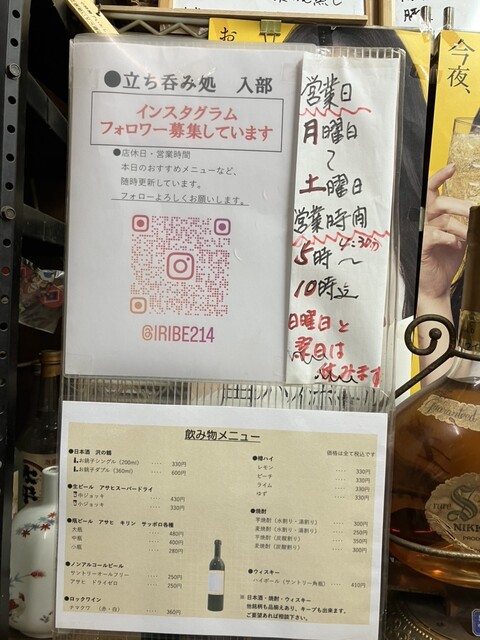 ●立ち呑み処 入部
インスタグラム
フォロワー募集しています
●店休日・営業時間
本日のおすすめメニューなど、
随時更新しています。
フォローよろしくお願いします。
@IRIBE214
営業日
月曜日
〜
土曜日
営業時間
4:30分
5時〜
10時迄
日曜日と
翌日は
休みます
今夜、
飲み物メニュー
価格は全て税込です
●日本酒 沢の鶴
お銚子シングル(200ml) ‥‥ 330円
お銚子ダブル(360ml) ‥‥ 600円
●生ビール アサヒスーパードライ
中ジョッキ ‥‥ 430円
小ジョッキ ‥‥ 330円
●瓶ビール アサヒ キリン サッポロ各種
大瓶 ‥‥ 480円
中瓶 ‥‥ 400円
小瓶 ‥‥ 280円
●ノンアルコールビール
サントリーオールフリー ‥‥ 250円
アサヒ ドライゼロ ‥‥ 250円
●ロックワイン
ナマクワ (赤・白) ‥‥ 360円
●樽ハイ
レモン ‥‥ 330円
ピーチ ‥‥ 330円
ライム ‥‥ 330円
ゆず ‥‥ 330円
●焼酎
芋焼酎(水割り・湯割り) ‥‥ 300円
麦焼酎(水割り・湯割り) ‥‥ 250円
芋焼酎(炭酸割り) ‥‥ 350円
麦焼酎(炭酸割り) ‥‥ 300円
●ウィスキー
ハイボール(サントリー角瓶) ‥‥ 410円
※ 日本酒・焼酎・ウィスキー
他銘柄も品揃えあり、キープも出来ます。
ご要望あれば相談下さい。
NIKK